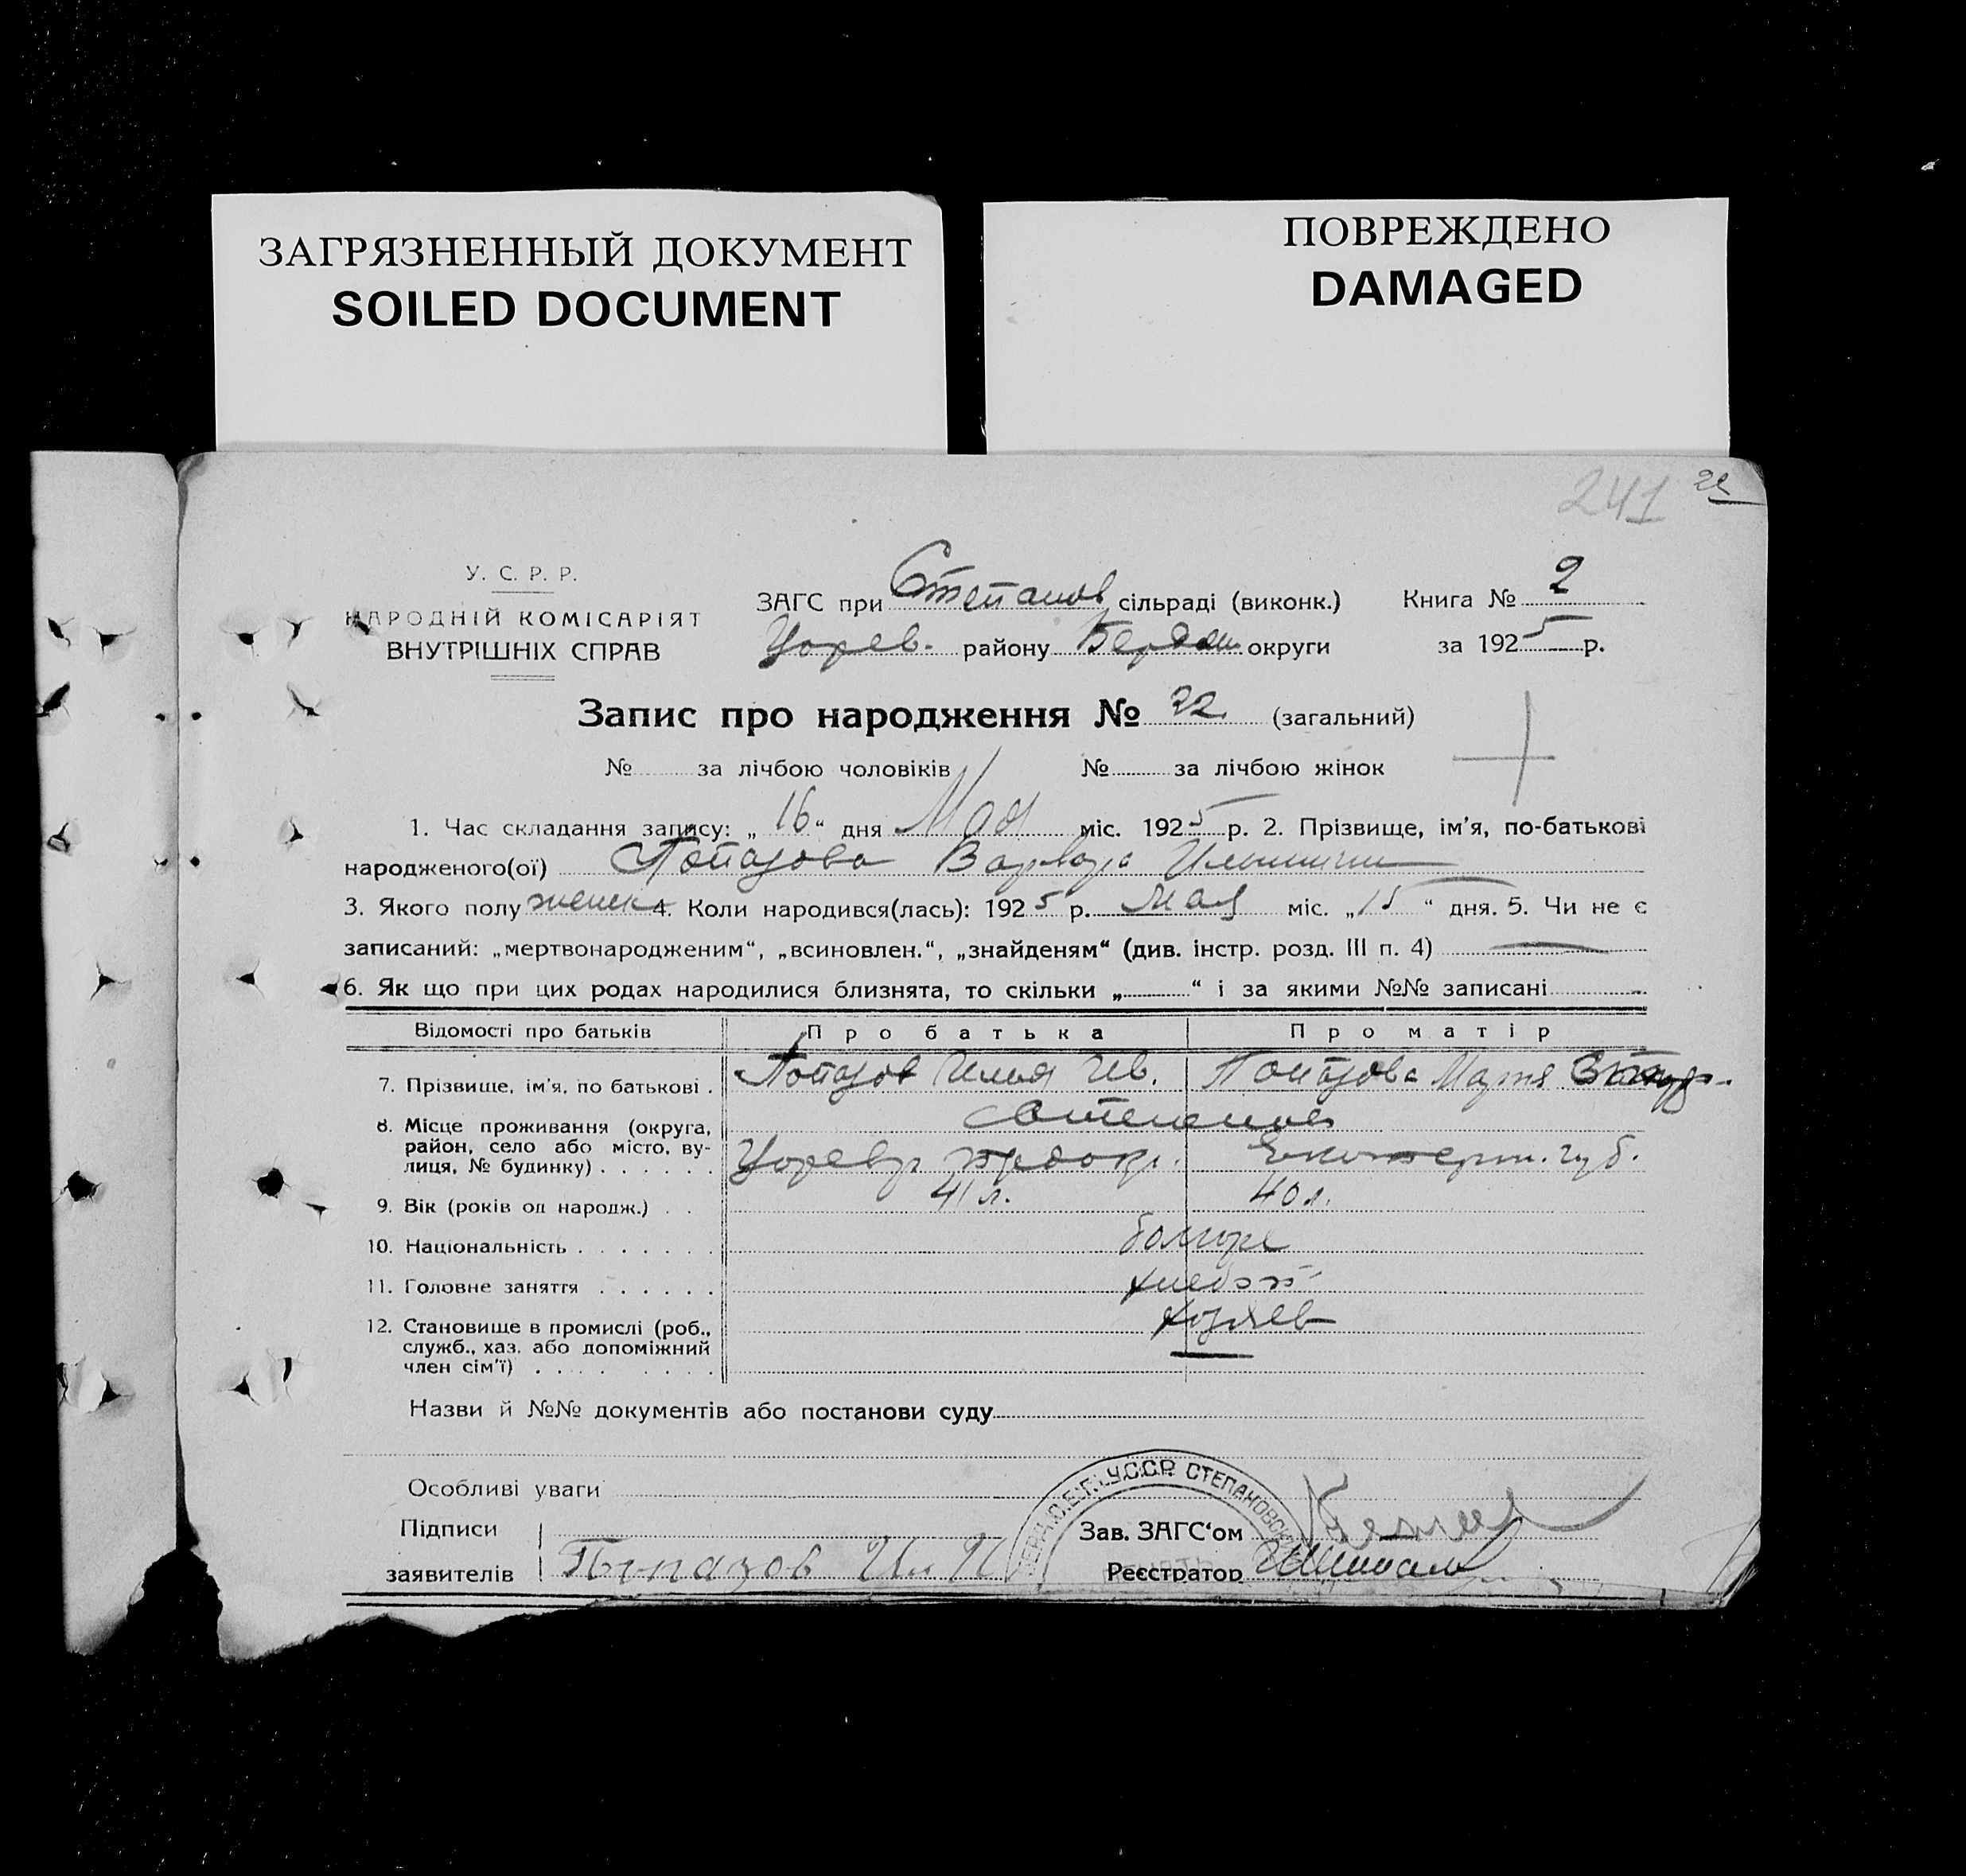 ЗАГРЯЗНЕННЫЙ ДОКУМЕНТ
SOILED DOCUMENT
ПОВРЕЖДЕНО
DAMAGED
241 22
У. С. Р. Р.
НАРОДНІЙ КОМІСАРІЯТ
ВНУТРІШНІХ СПРАВ
ЗАГС при Степанов сільраді (виконк.) Книга № 2
Царев. району Бердян округи за 1925 р.
Запис про народження № 22 (загальний)
№ за лічбою чоловіків № за лічбою жінок
1. Час складання запису: „16“ дня Мая міс. 1925 р. 2. Прізвище, ім'я, по-батькові
народженого(ої) Попазова Варвара Ильинична
3. Якого полу женск 4. Коли народився(лась): 1925 р. Мая міс. „15“ дня. 5. Чи не є
записаний: „мертвонародженим“, „всиновлен.“, „знайденям“ (див. інстр. розд. III п. 4)
6. Як що при цих родах народилися близнята, то скільки „ “ і за якими №№ записані
Відомості про батьків Про батька Про матір
7. Прізвище, ім'я, по батькові . Попазов Илья Ив. Попазова Мария
8. Місце проживання (округа,
район, село або місто, ву-
лиця, № будинку) . . . . . Царевр. Екатерин. губ.
9. Вік (років од народж.) . . 41 л. 40 л.
10. Національність . . . . . . . болгаре
11. Головне заняття . . . . . . хлебоп
12. Становище в промислі (роб.,
служб., хаз. або допоміжний
член сім'ї) . . . . . . . . хозяев
Назви й №№ документів або постанови суду
Особливі уваги
У.С.С.Р. СТЕПАНОВСК
Підписи
заявителів Попазов Ил И
Зав. ЗАГС‘ом
Реєстратор